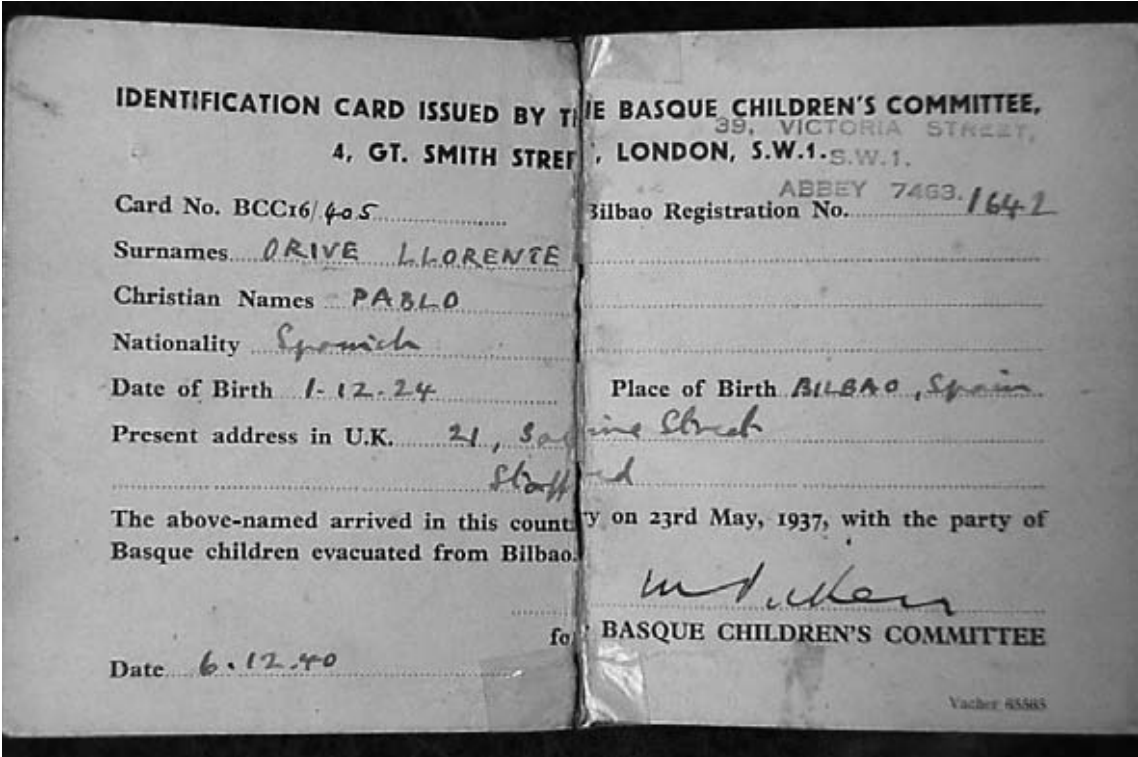 IDENTIFICATION CARD ISSUED BY THE BASQUE CHILDREN'S COMMITTEE,
39, VICTORIA STREET,
4, GT. SMITH STREE , LONDON, S.W.1.
S.W.1.
ABBEY 7463.
Card No. BCC16/405 Bilbao Registration No. 1642
Surnames ORIVE LLORENTE
Christian Names PABLO
Nationality Spanish
Date of Birth 1-12-24 Place of Birth BILBAO, Spain
Present address in U.K. 21, Street
Stafford
The above-named arrived in this country on 23rd May, 1937, with the party of
Basque children evacuated from Bilbao.
for BASQUE CHILDREN'S COMMITTEE
Date 6.12.40
Vacher 65565